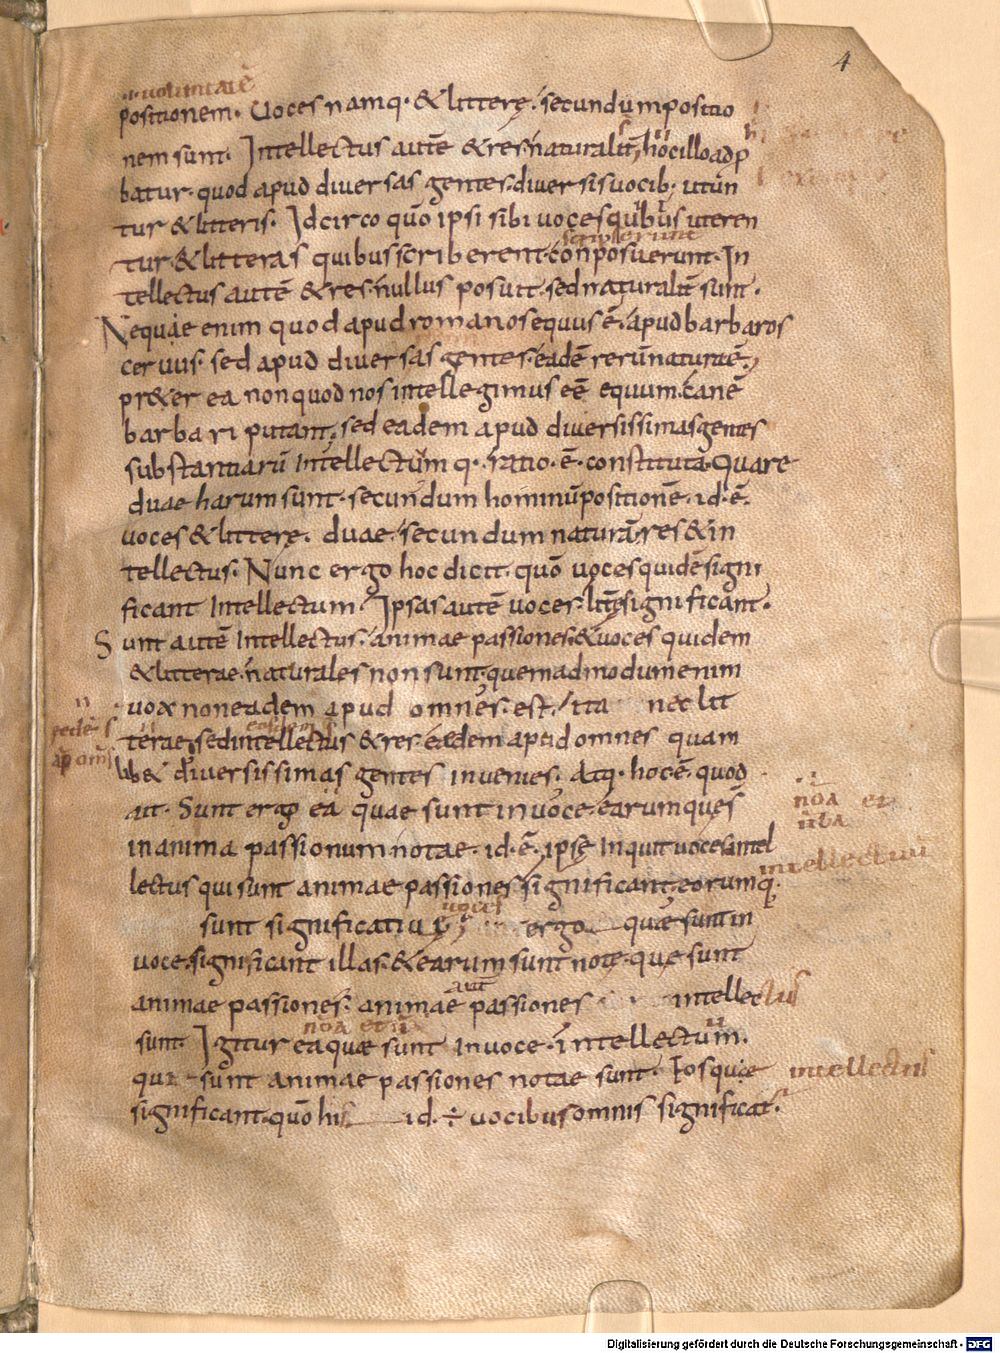 4
voluntatē
positionem. Voces namq· & litterę. secundum positio
nem sunt. Intellectus autē & res naturalit̄, hoc illo adp
batur. quod apud diversas gentes. diversis vocib· utun
tur & litteris. Idcirco quō ipsi sibi voces quibus uteren
scripserunt
tur. & litteras quibus scriberent. conposuerunt. In
tellectus autē & res nullus posuit. sed naturalit̄ sunt.
Nequae enim quod apud romanos equus ē. apud barbaros
cervus. sed apud diversas gentes. eadē rerū natura ē.
pr&er ea non quod nos intellegimus eē equum. canē
barbari putant, sed eadem apud diversissimas gentes
substantiarū Intellectūm q· ratio· ē· constituta. Quare
duae harum sunt. secundum hominū positionē. id· ē·
voces & litterę. duae secundum naturā, res & in
tellectus. Nunc ergo hoc dicit. quō voces quidē signi
ficant Intellectum. Ipsas autē voces. litterę significant.
Sunt autē Intellectus. animae passiones. & voces quidem
& litterae. naturales non sunt. quemadmodum enim
vox non eadem apud omnes. est, ita nec lit
eosdem
terae, sed intellectus & res. eadem apud omnes quam
lib& diversissimas gentes invenies. Atq· hoc ē. quod
ait. Sunt ergo ea quae sunt in voce. earum quę s̄
noā et
ūba
in anima passionum notae. id· ē. ipsę Inquit voces intel
intellectuū
lectus qui sunt animae passiones significant. eorumq·
voces
sunt significativę, ergo quae sunt in
voce. significant illas. & earum sunt notę. quę sunt
aut̄
animae passiones. animae passiones intellectus
noā et ū
sunt. Igitur ea quae sunt In voce. intellectum.
quę sunt animae passiones notae sunt. Hos quae intellectus
significant. quō his id· ÷ vocibus omnis significat̄.
Digitalisierung gefördert durch die Deutsche Forschungsgemeinschaft - DFG